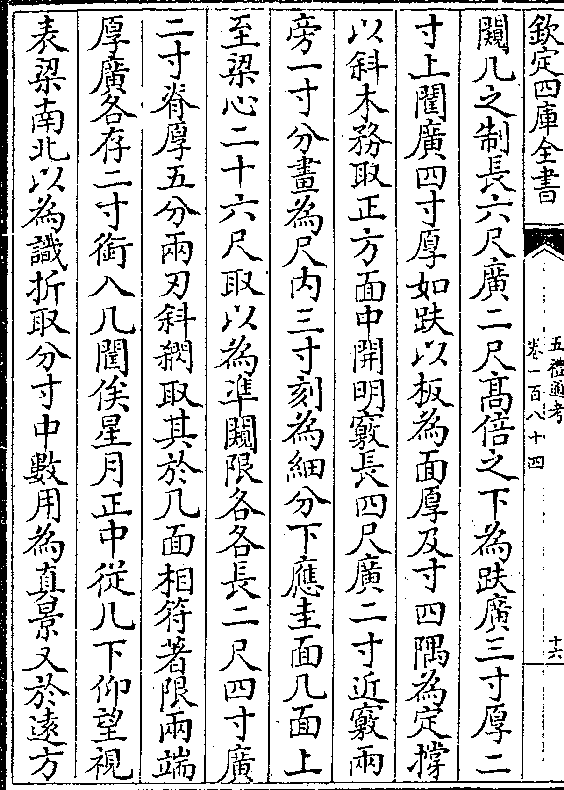 欽定四庫全書
五禮通考
卷一百八十四
十六
闚几之制長六尺廣二尺高倍之下為趺廣三寸厚二
寸上闉廣四寸厚如趺以板為面厚及寸四隅為定撐
以斜木務取正方面中開明竅長四尺廣二寸近竅兩
旁一寸分畫為尺内三寸刻為細分下應圭面几面上
至梁心二十六尺取以為準闚限各各長二尺四寸廣
二寸脊厚五分兩刃斜䦚取其於几面相符著限兩端
厚廣各存二寸銜入几闉俟星月正中從几下仰望視
表梁南北以為識折取分寸中數用為真景又於遠方